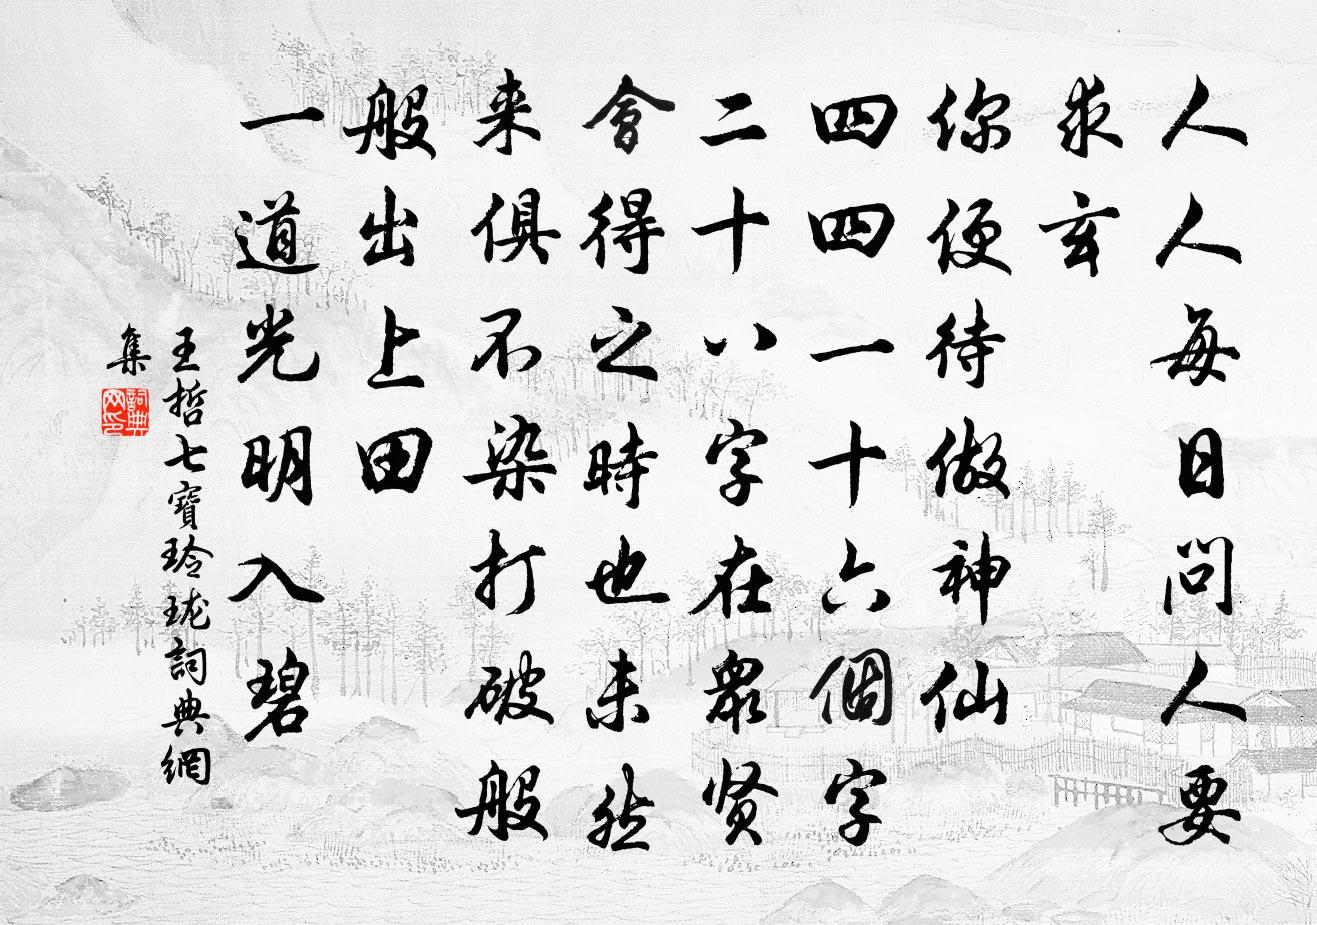 人人每日问人要
求玄
你便待做神仙
四四一十六個字
二十八字在衆贤
會得之時也未然
来俱不染打破般
般出上田
一道光明入碧
王哲七寶玲珑詞典網
集
詞典网印